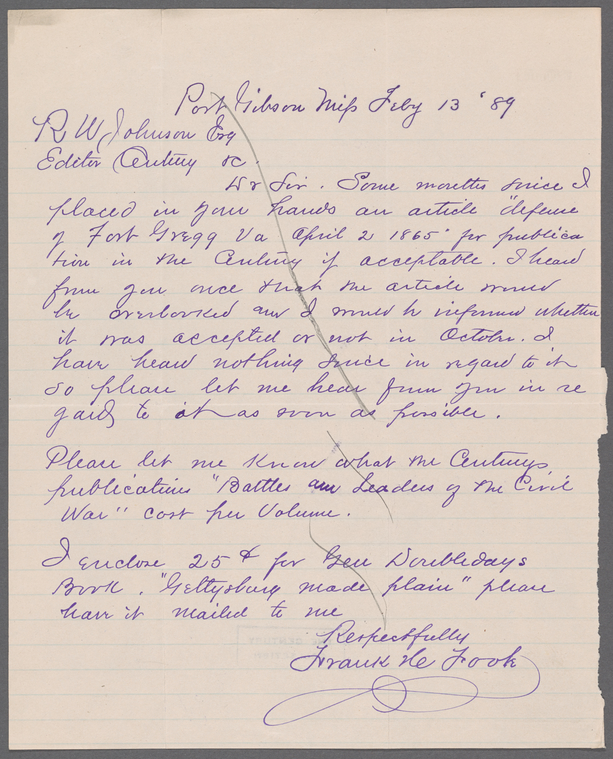 Port Gibson Miss Feby 13 '89
R W Johnson Esq
Editor Century &c.
Dr Sir. Some months since I
placed in your hands an article "defense
of Fort Gregg Va April 2 1865" for publica
tion in the Century if acceptable. I heard
from you once that the article would
be overlooked and I would be informed whether
it was accepted or not in October. I
have heard nothing since in regard to it
so please let me hear from you in re
gard to it as soon as possible.
Please let me know what the Centurys
publications "Battles and Leaders of the Civil
War" cost per Volume.
I enclose 25 ¢ for Gen Doubledays
Book. "Gettysburg made plain" please
have it mailed to me
Respectfully
Frank H Foote